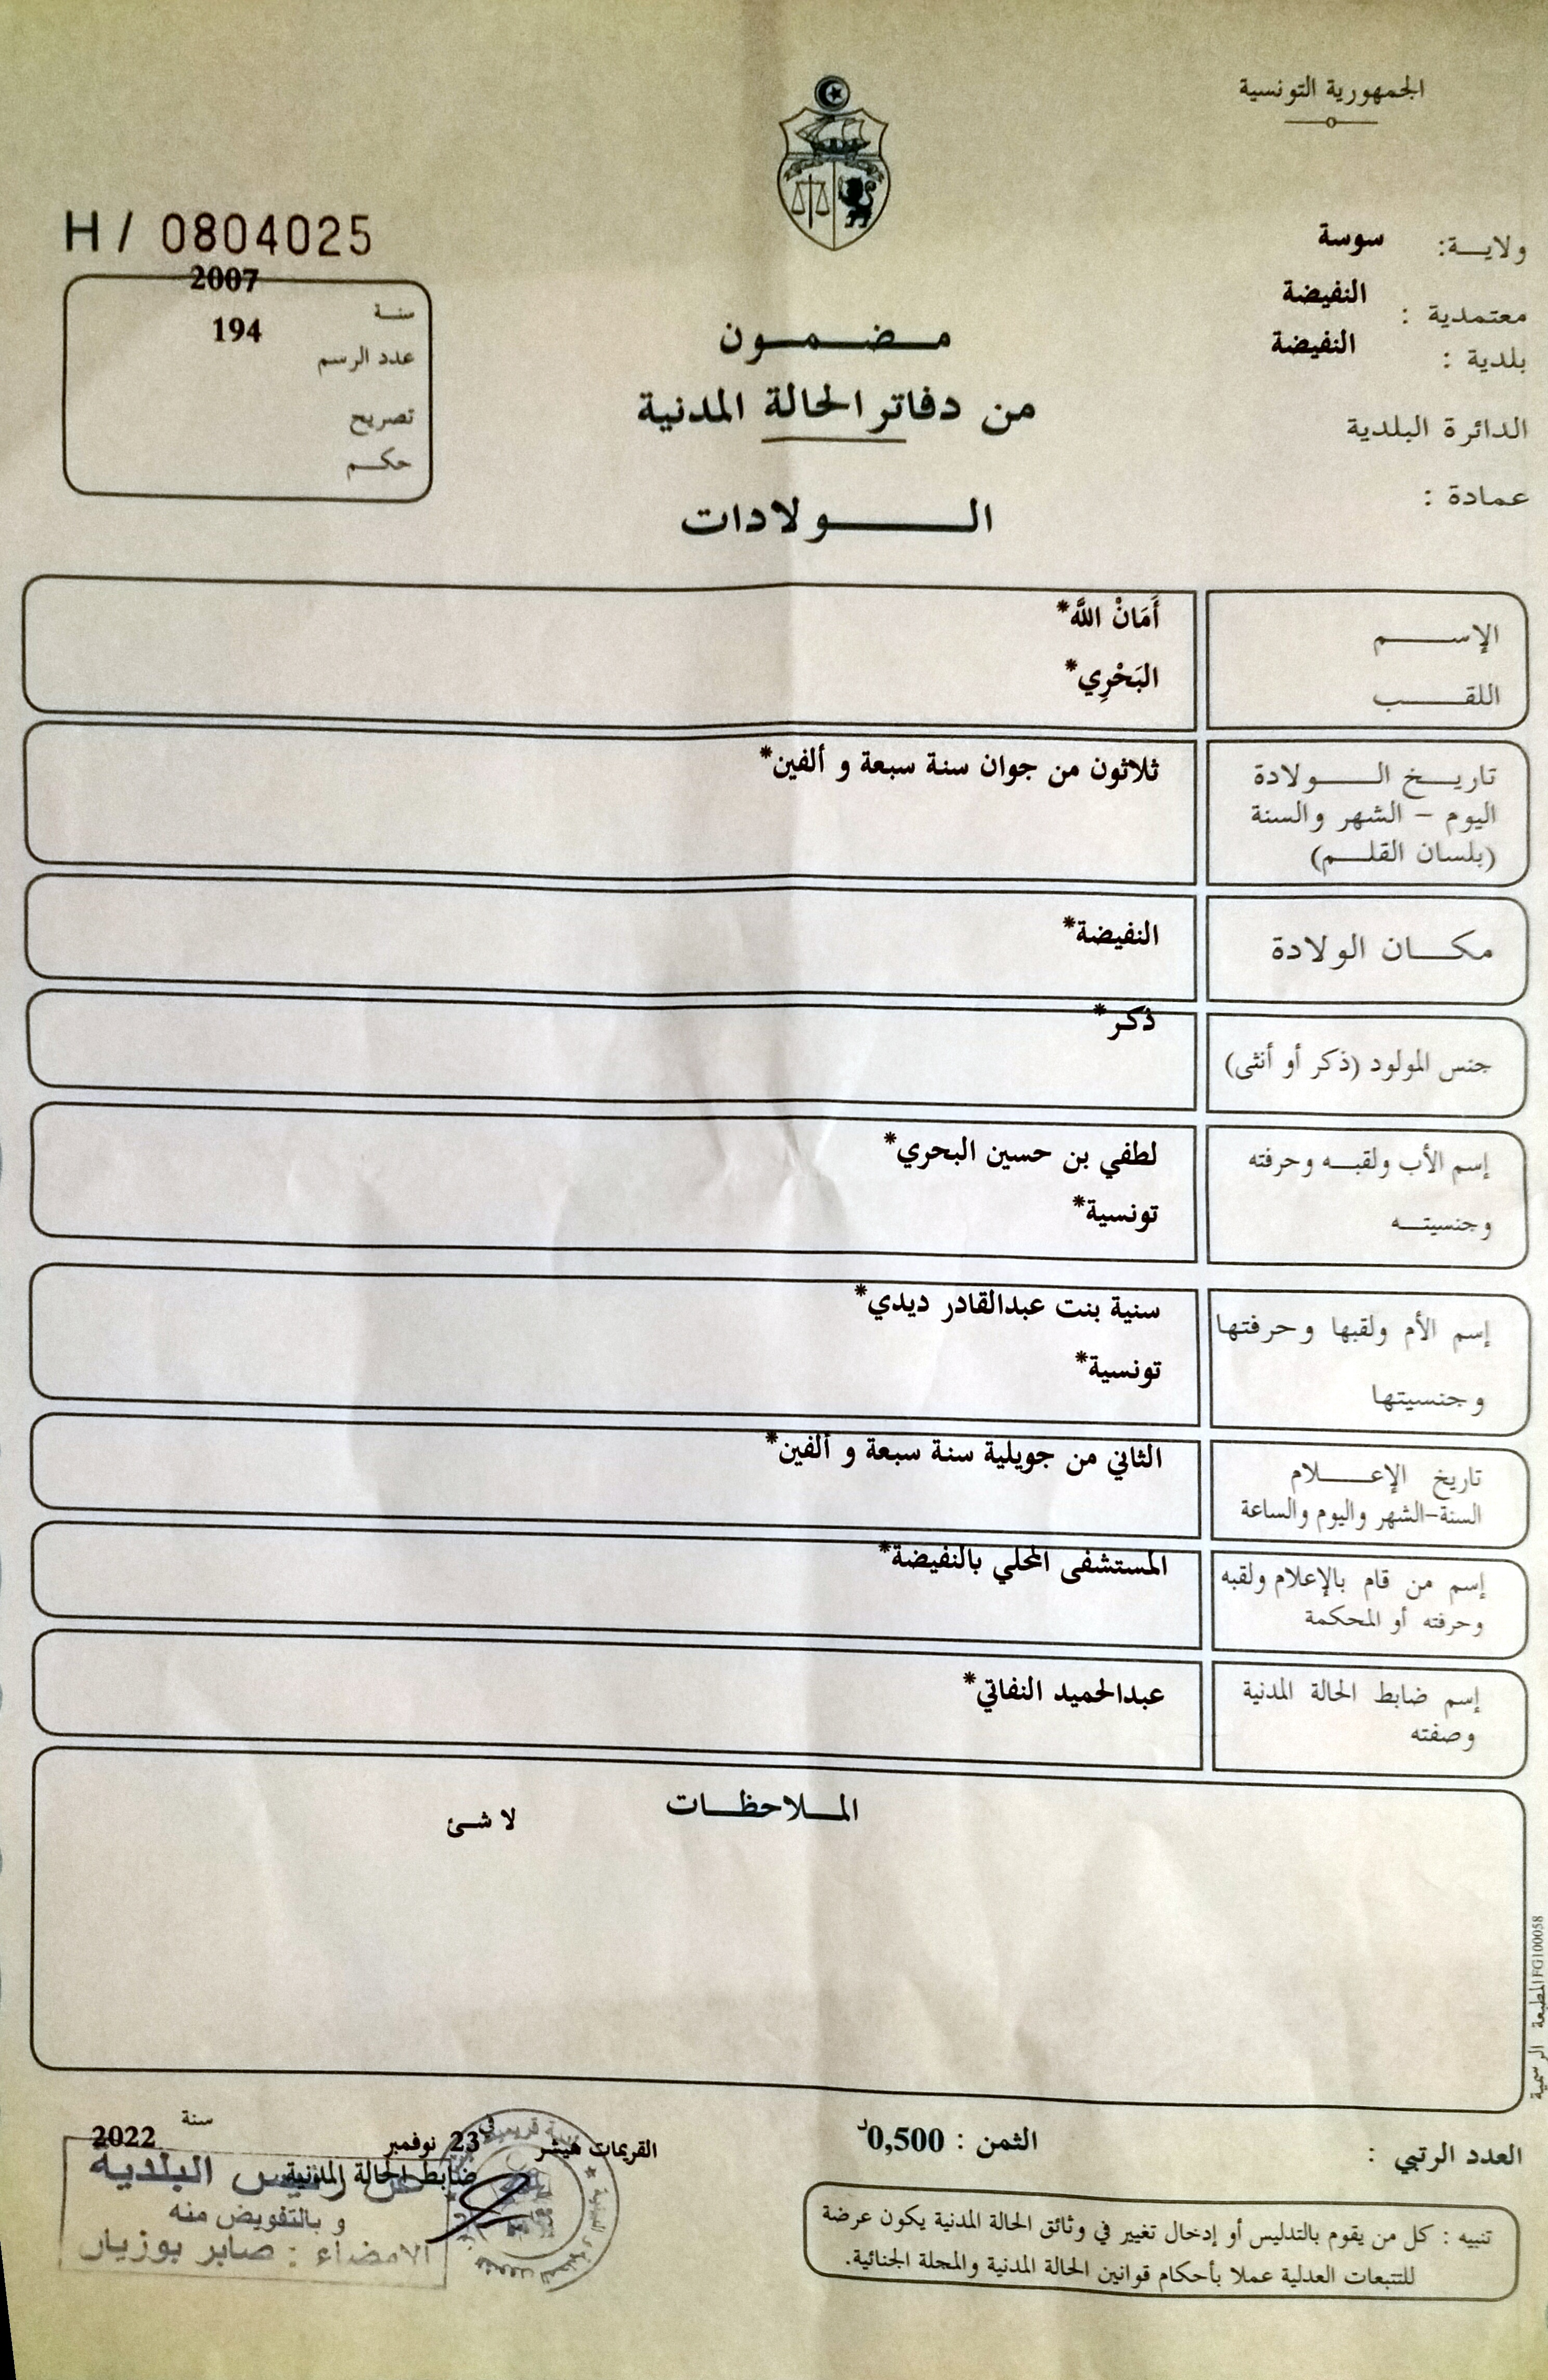 الجمهورية التونسية
H / 0804025
ولاية: سوسة
معتمدية : النفيضة
بلدية : النفيضة
الدائرة البلدية
عمادة :
سنة 2007
عدد الرسم 194
تصريح
حكم
مضمون
من دفاتر الحالة المدنية
الولادات
الإسم أَمَانْ اللَّه*
اللقب البَحْرِي*
تاريخ الولادة ثلاثون من جوان سنة سبعة و ألفين*
اليوم - الشهر والسنة
(بلسان القلم)
مكان الولادة النفيضة*
جنس المولود (ذكر أو أنثى) ذكر*
إسم الأب ولقبه وحرفته لطفي بن حسين البحري*
وجنسيته تونسية*
إسم الأم ولقبها وحرفتها سنية بنت عبدالقادر ديدي*
وجنسيتها تونسية*
تاريخ الإعلام الثاني من جويلية سنة سبعة و ألفين*
السنة-الشهر واليوم والساعة
إسم من قام بالإعلام ولقبه المستشفى المحلي بالنفيضة*
وحرفته أو المحكمة
إسم ضابط الحالة المدنية عبدالحميد النفاتي*
وصفته
الملاحظات
لا شئ
المطبعة الرسمية FG100058
العدد الرتبي :
الثمن : 0,500د
القريمات هيشر في 23 نوفمبر سنة 2022
ضابط الحالة المدنية
عن رئيس البلدية
و بالتفويض منه
الامضاء : صابر بوزيان
تنبيه : كل من يقوم بالتدليس أو إدخال تغيير في وثائق الحالة المدنية يكون عرضة
للتتبعات العدلية عملا بأحكام قوانين الحالة المدنية والمجلة الجنائية.